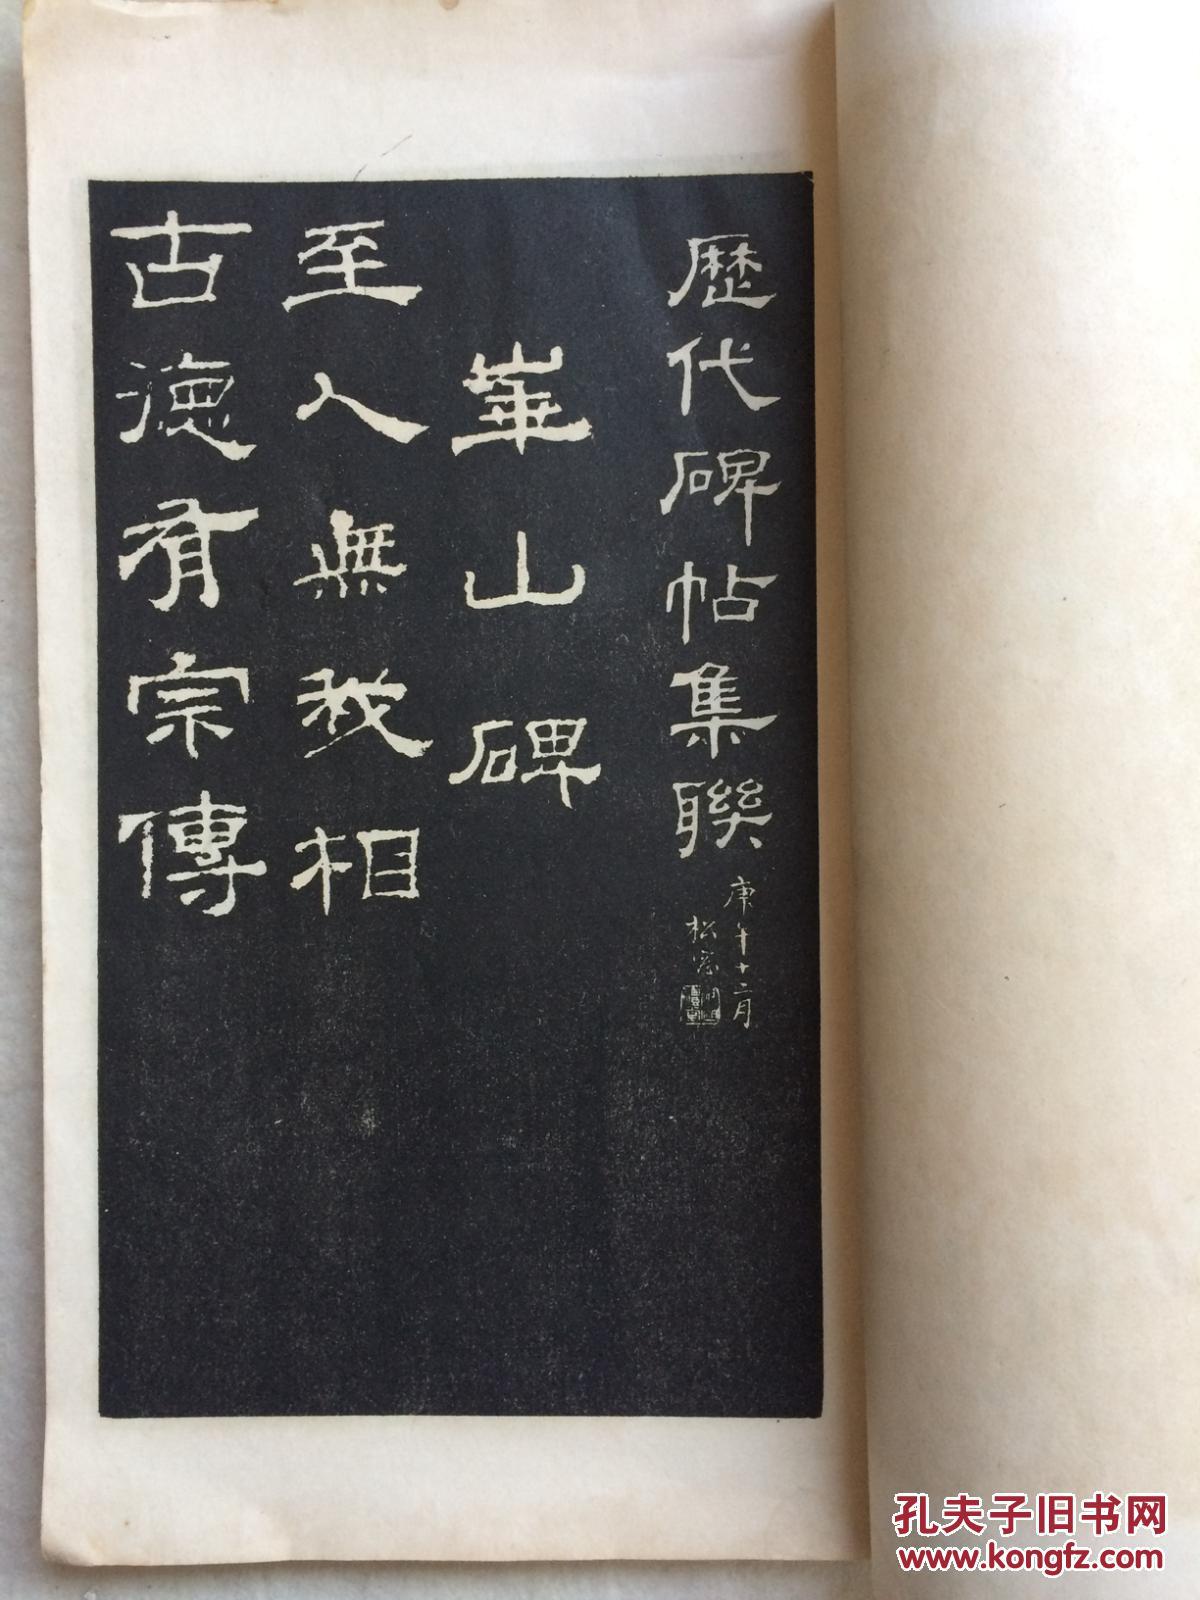 歷代碑帖集聯
庚午十二月
松窓
崋山碑
至人無我相
古德有宗傳
孔夫子旧书网
www.kongfz.com